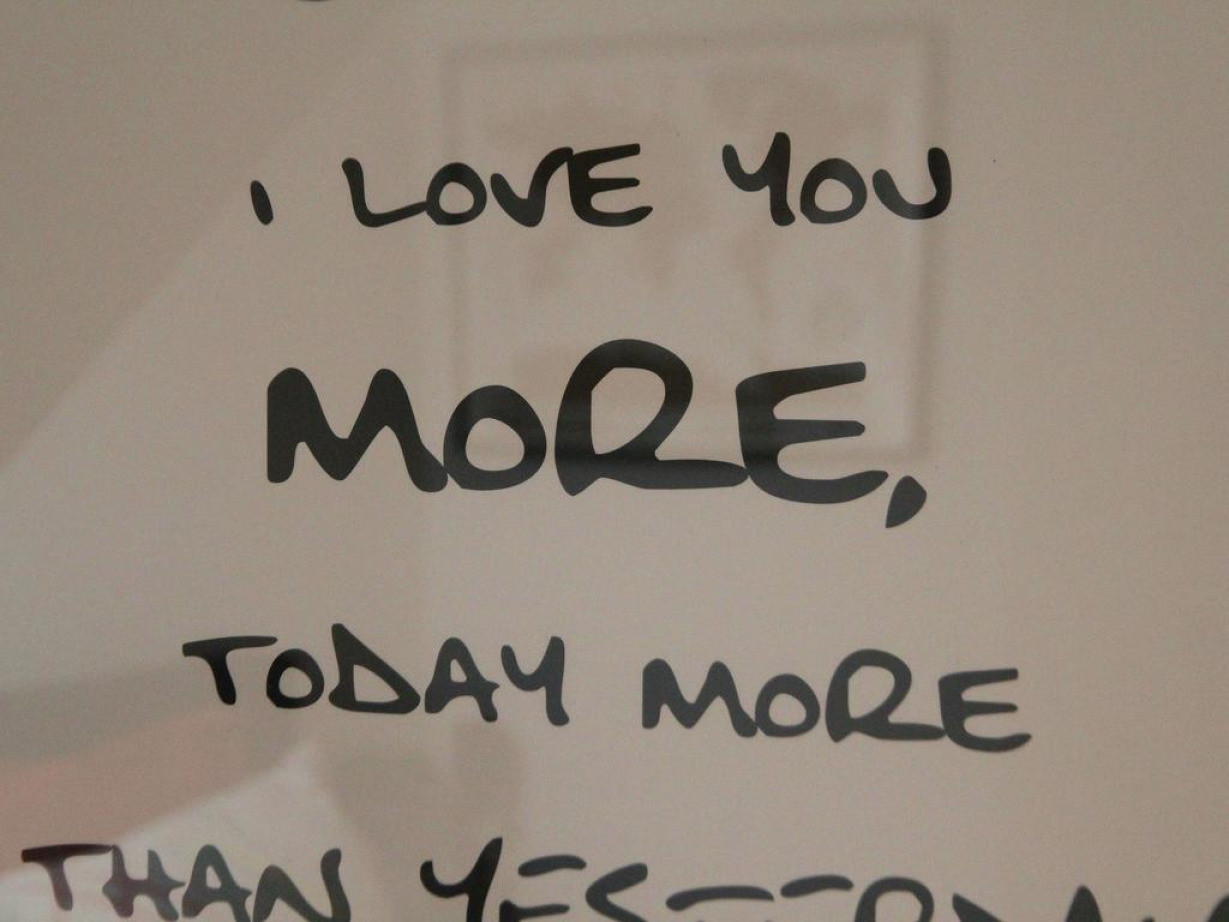 I LOVE YOU
MORE,
TODAY MORE
THAN YESTERDAY